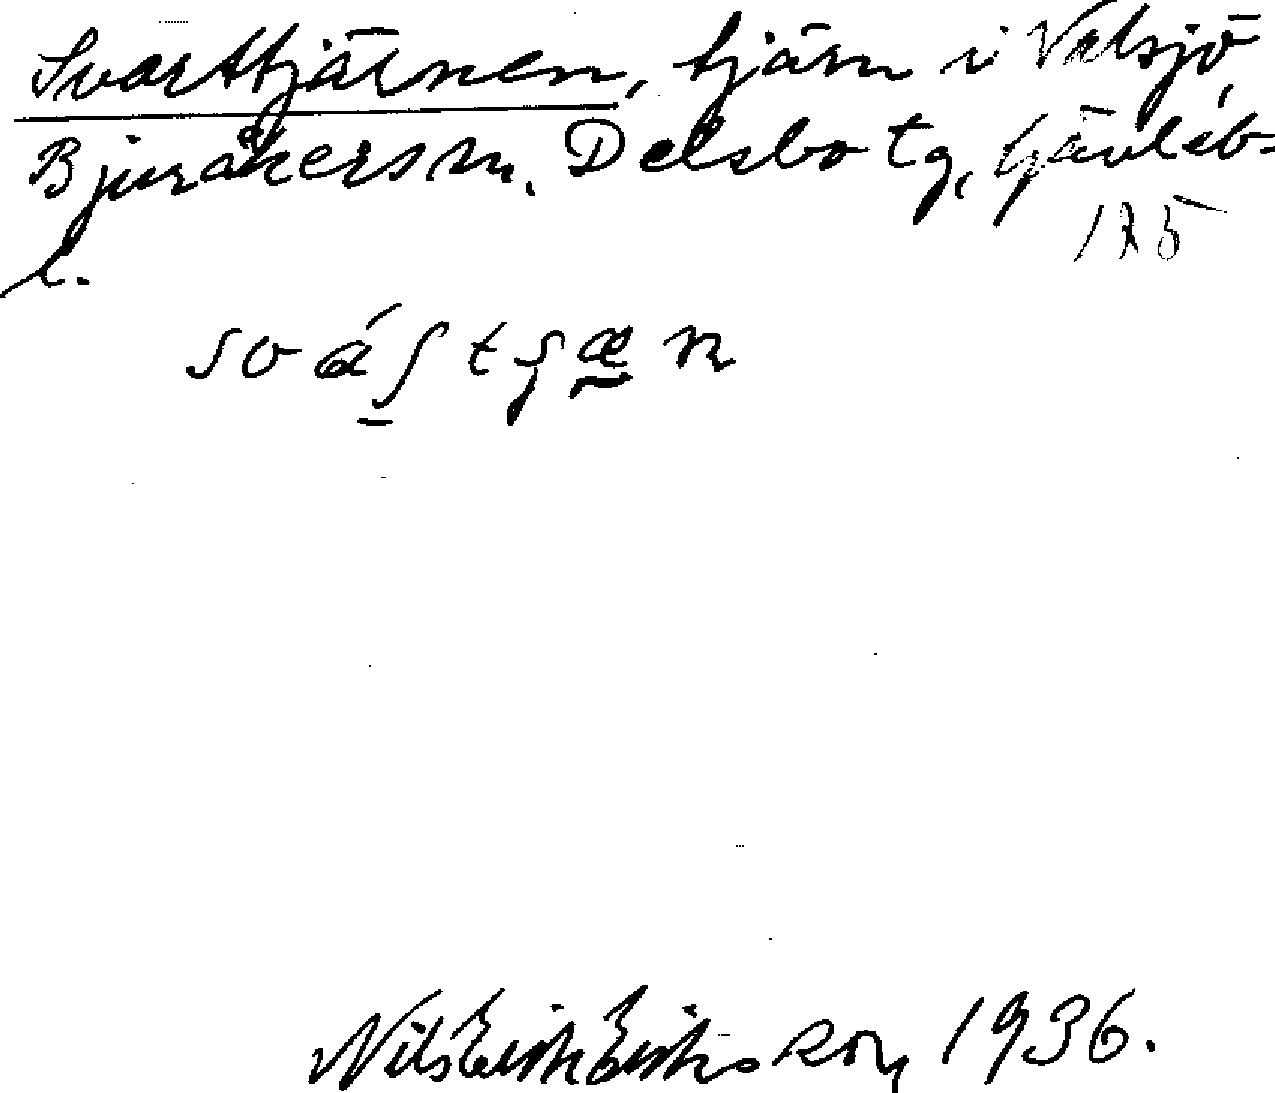 Svarttjärnen, tjärn i Valsjö,
Bjuråkers sn. Delsbo tg, Gävleb-
125
l.
Nils Erik Eriksson, 1936.